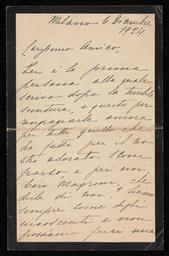 Milano 6 Dicembre
1924
Carissimo Amico,
Lei è la prima
persona alla quale
scrivo dopo la terribile
sventura, e questo per
ringraziarla ancora
per tutto quello che
ha fatto per il no-
stro adorato Scom
parso, e per noi
Caro Magrini che
dirle di noi, Siamo
sempre come degli
incoscienti e non
possiamo farci una